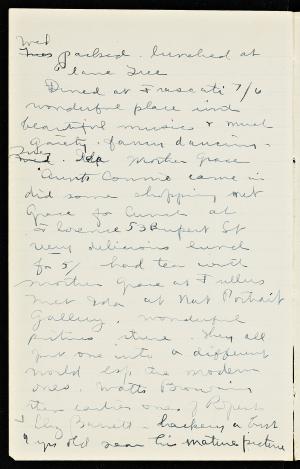 Wed
Tues packed. lunched at
Plane Tree
Dined at Frascati 7/6
wonderful place and
beautiful music & much
gaiety. fancy dancing.
Tues
Wed. Ida Mother Grace
Aunt Connie came in
did some shopping met
Grace for lunch at
Florence 53 Rupert St
very delicious lunch
for 5/ had tea with
mother Grace at Fullers
met Ida at Nat Portrait
Gallery. wonderful
pictures there. They all
put one into a different
world esp the modern
ones. Watts Browning
then earlier ones of Rupert
& Eliz Barrett
9 yrs old near his mature picture